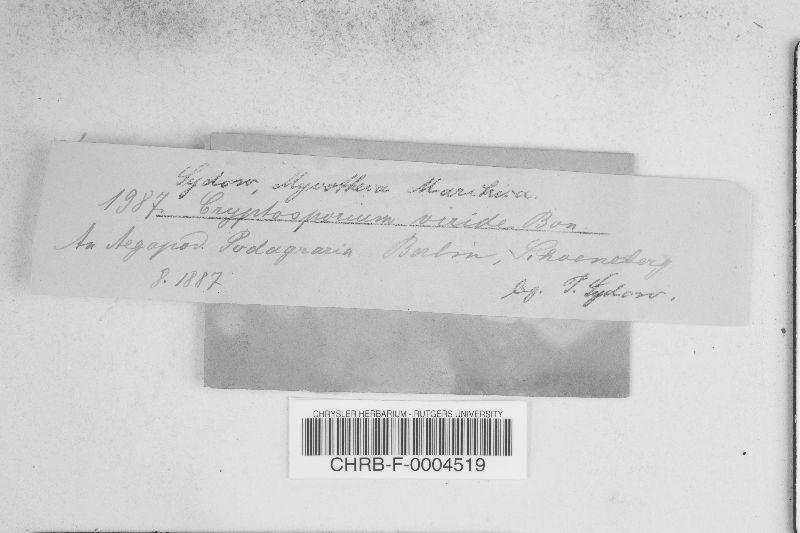 Sydow, Mycotheca Marchica.
1987. Cryptosporium viride Bon.
An Aegopod. Podagraria Berlin, Schoeneberg
8. 1887 leg. P. Sydow.
CHRYSLER HERBARIUM - RUTGERS UNIVERSITY
CHRB-F-0004519